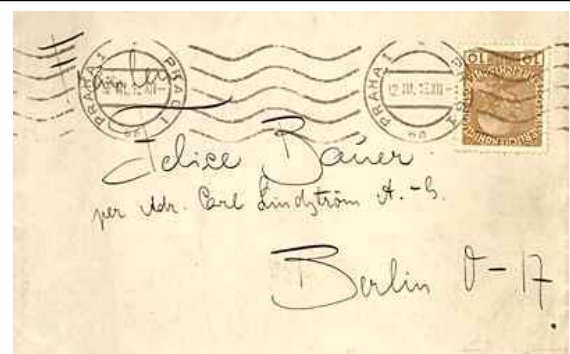 PRAHA 1 PRAG 1
PRAHA 1
12 III. 13 XII-
10 10
Felice Bauer
per Adr. Carl Lindström A.-G.
Berlin O-17